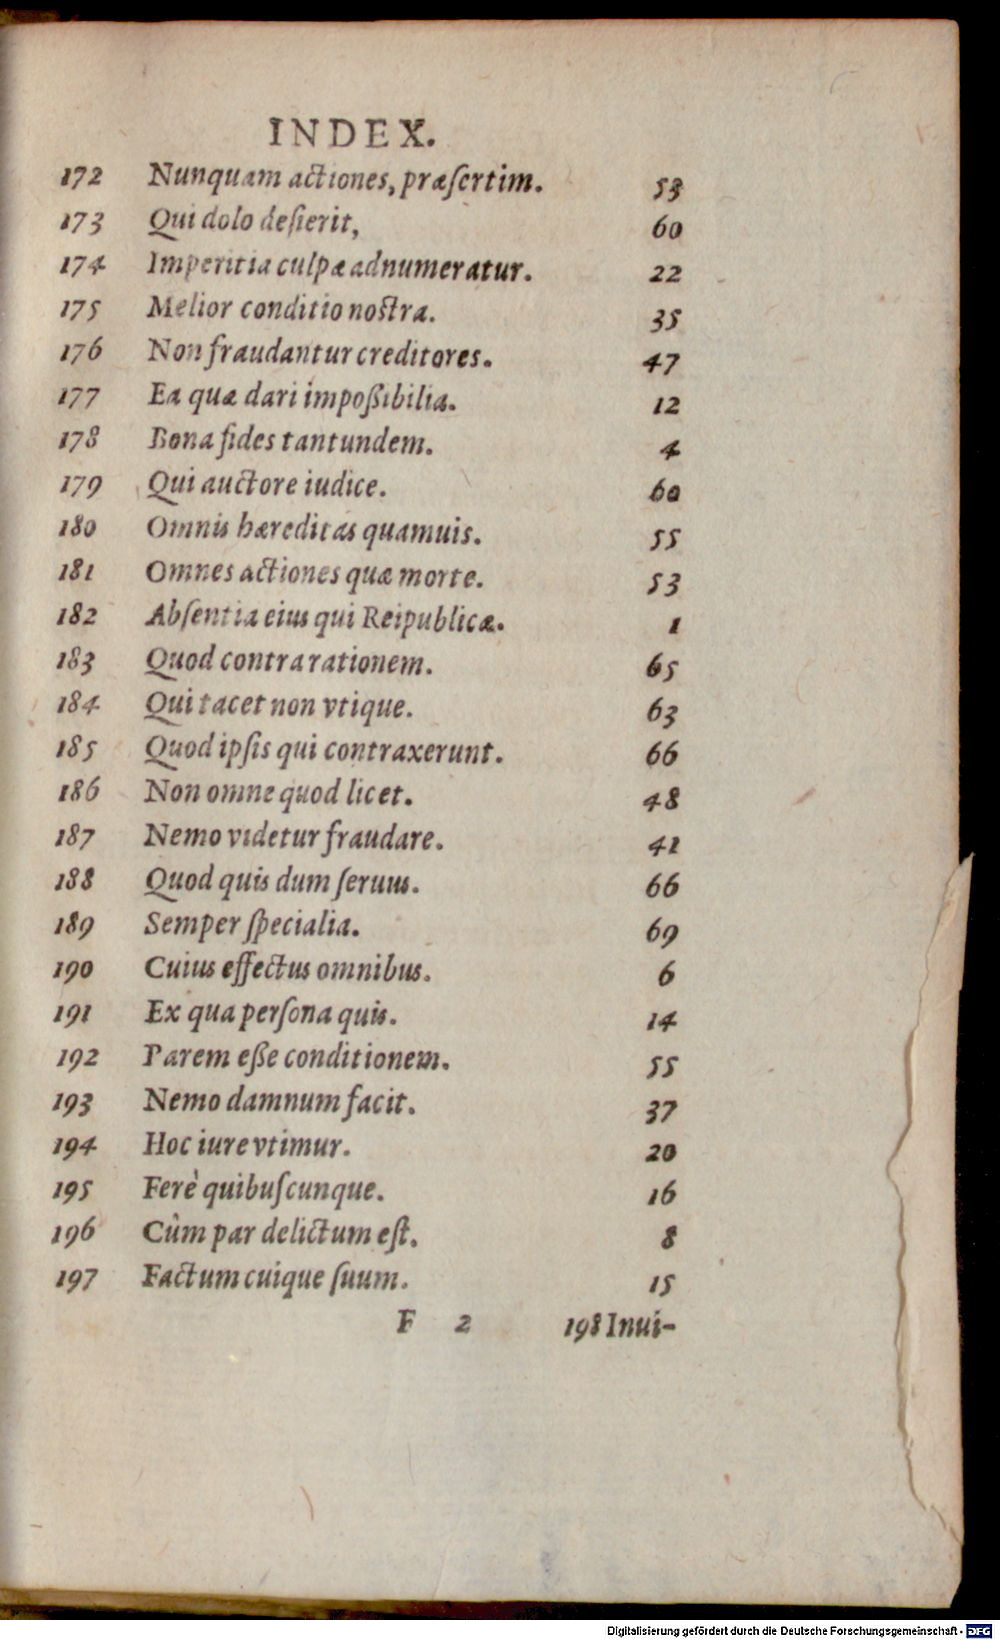 INDEX.
172 Nunquam actiones, præſertim. 53
173 Qui dolo deſierit, 60
174 Imperitia culpæ adnumeratur. 22
175 Melior conditio nostra. 35
176 Non fraudantur creditores. 47
177 Ea quæ dari impoßibilia. 12
178 Bona fides tantundem. 4
179 Qui auctore iudice. 60
180 Omnis hæreditas quamuis. 55
181 Omnes actiones quæ morte. 53
182 Abſentia eius qui Reipublicæ. 1
183 Quod contra rationem. 65
184 Qui tacet non vtique. 63
185 Quod ipſis qui contraxerunt. 66
186 Non omne quod licet. 48
187 Nemo videtur fraudare. 41
188 Quod quis dum ſeruus. 66
189 Semper ſpecialia. 69
190 Cuius effectus omnibus. 6
191 Ex qua perſona quis. 14
192 Parem eße conditionem. 55
193 Nemo damnum facit. 37
194 Hoc iure vtimur. 20
195 Ferè quibuſcunque. 16
196 Cûm par delictum eſt. 8
197 Factum cuique ſuum. 15
F 2 198 Inui-
Digitalisierung gefördert durch die Deutsche Forschungsgemeinschaft - DFG